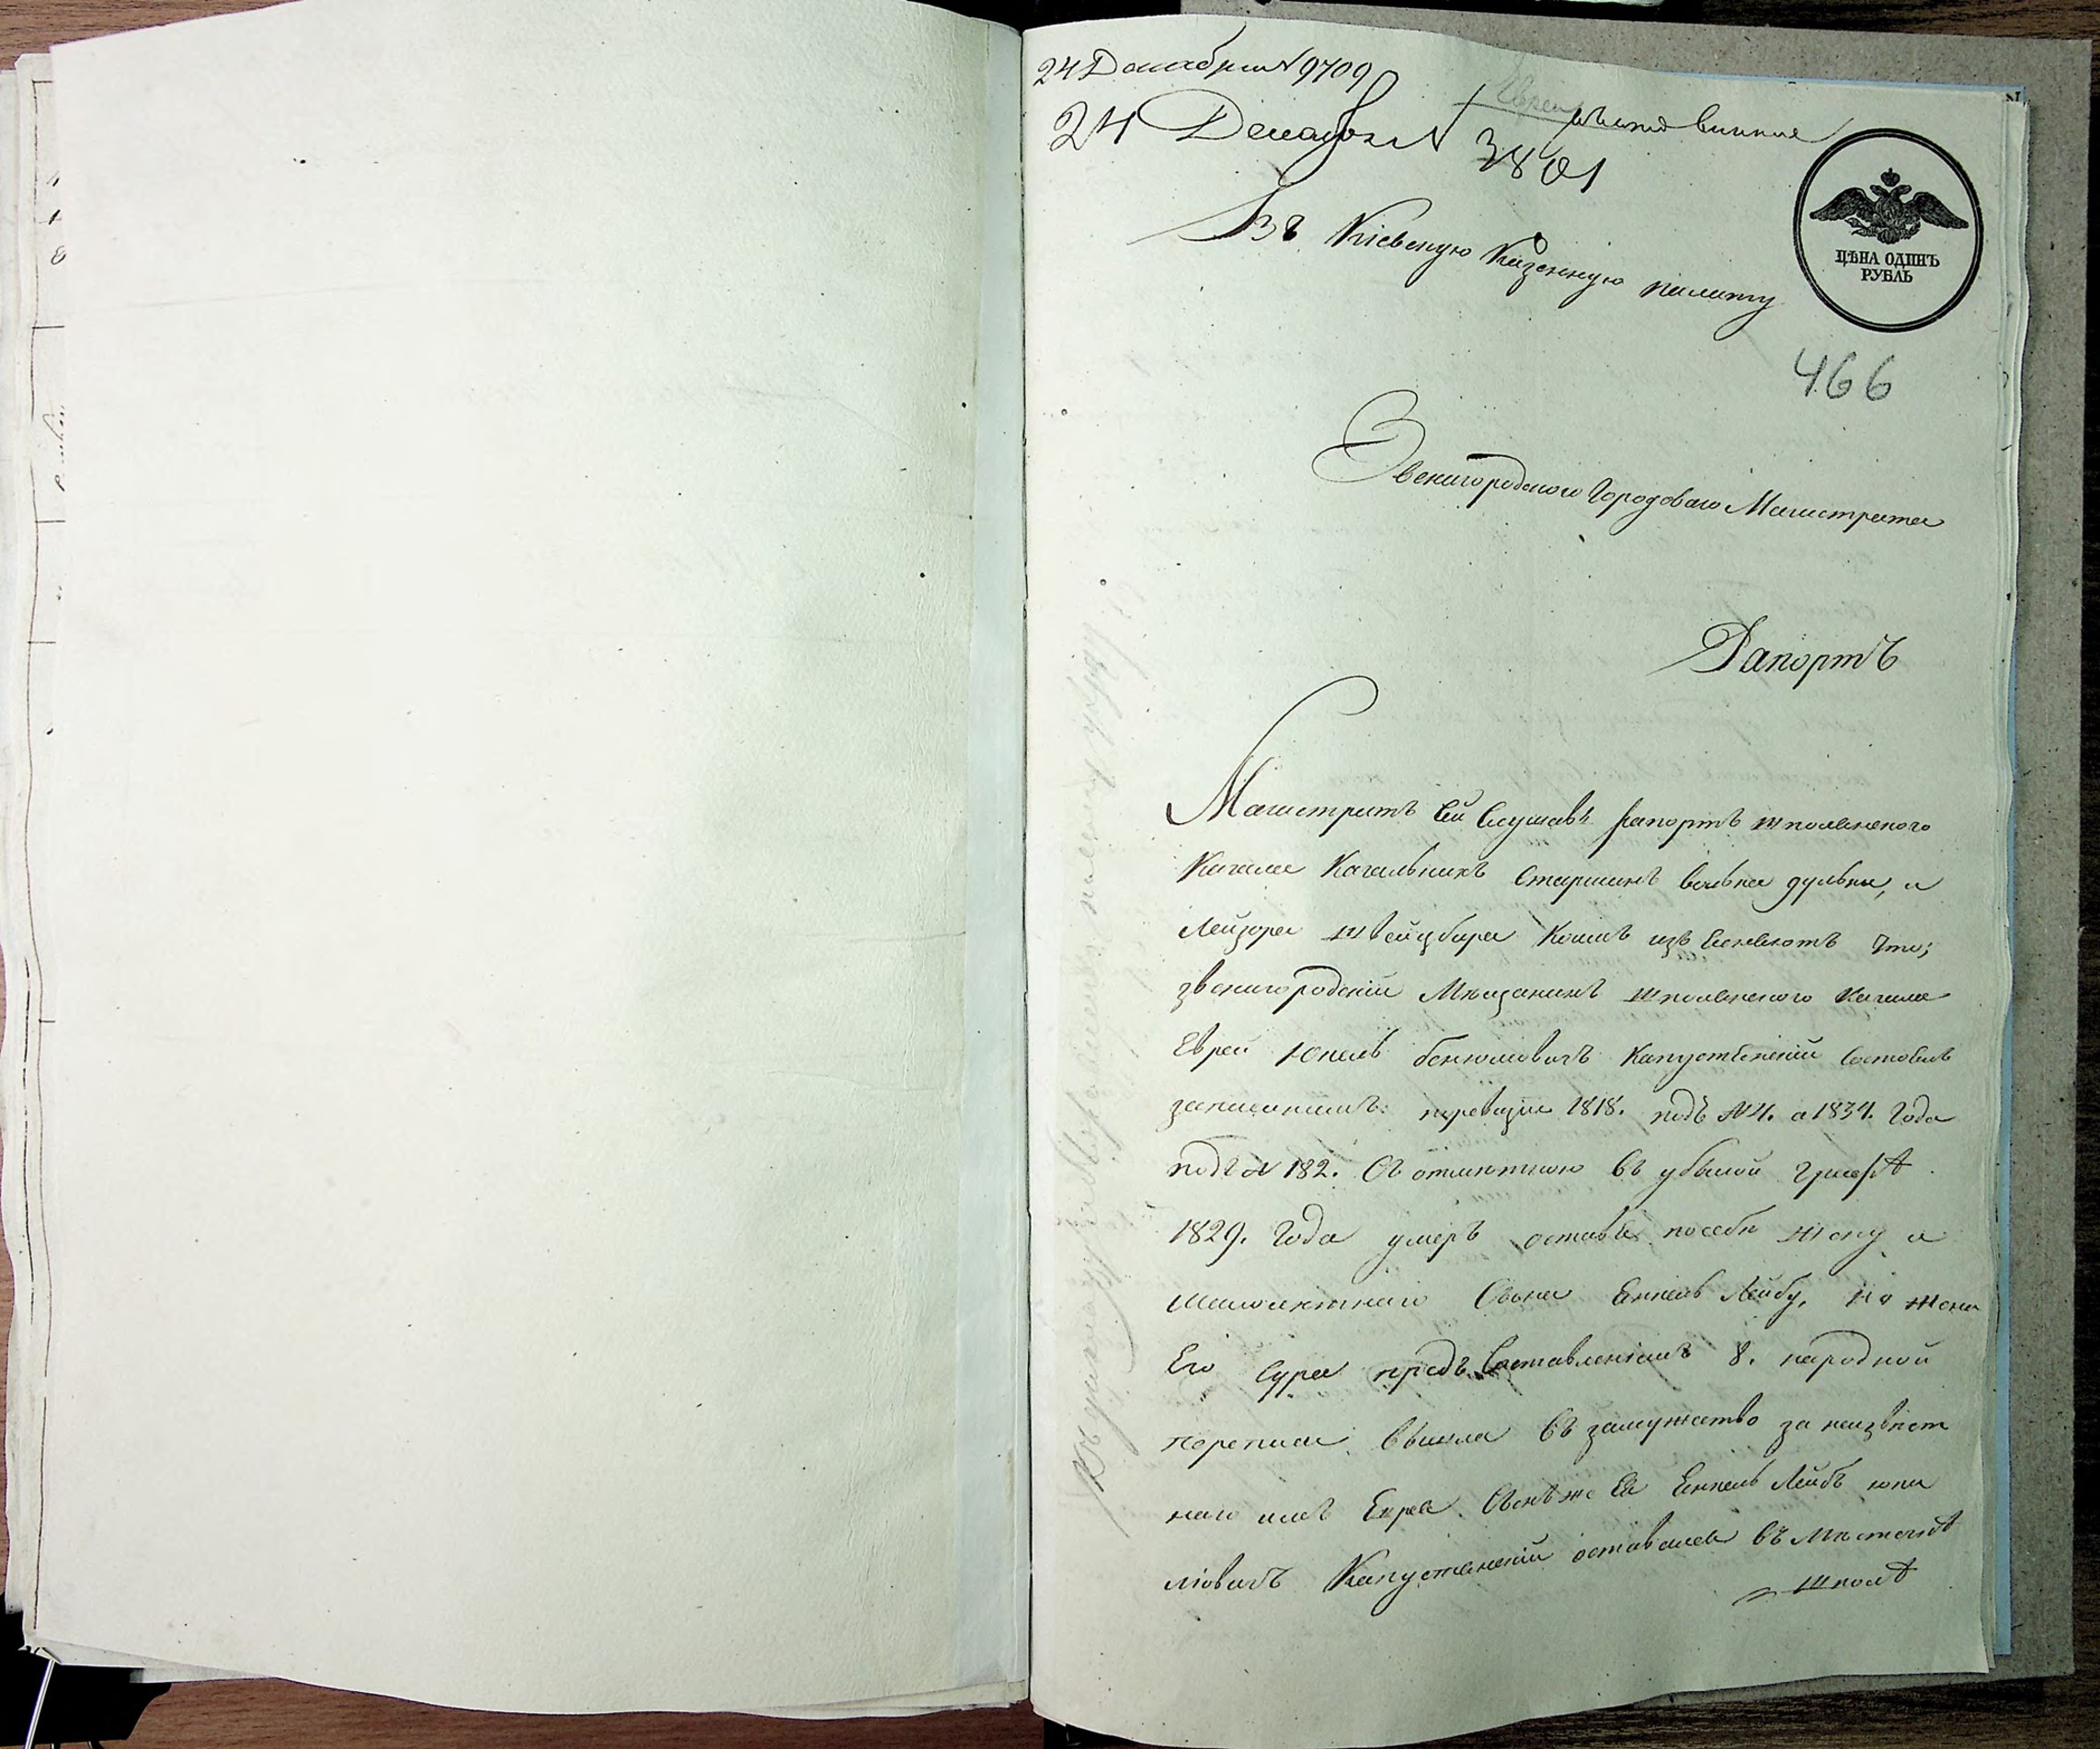 24 Декабря N 9709
24 Декабря N 3801
Въ Кіевскую Казенную палату
ЦѢНА ОДИНЪ
РУБЛЬ
466
Звенигородского Городоваго Магистрата
Рапортъ
Магистратъ сей слушавъ рапортъ шполянского
Кагала Кагальныхъ Старшинъ
Лейзора Швейцбура Коимъ изъясняютъ что;
звенигородскій Мѣщанинъ шполянского Кагала
Еврей Юпель Бенюмовичъ Капустянскій состоялъ
записаннымъ: поревизіи 1818. подъ N 4. а 1834. года
подъ N 182. Съ отмѣткою въ убылой графѣ
1829. года умеръ оставя посебѣ жону и
малолѣтнаго Сына Беркель Лейбу, но жона
Его Сура предъ Составленіемъ 8. народной
переписи вышла въ замужство за неизвѣст
наго имъ Еврея Сынъ же Ея Лейбъ юпи
лювичъ Капустянскій оставался въ Мѣстечкѣ
Шполѣ